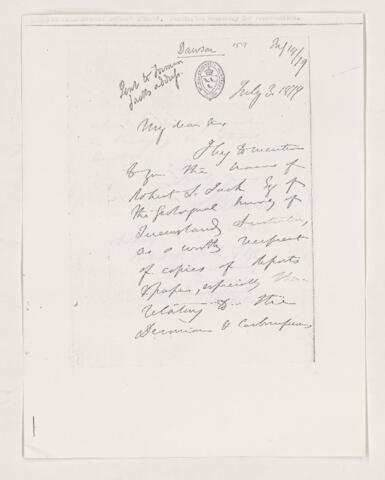 Dawson 157
July 14/79
Sent to Damon
Jacks address.
July 3. 1879
My dear Sir
I beg to mention
to you the name of
Robert L. Jack Esq of
the Geological Survey of
Queensland Australia,
as a worthy recipient
of copies of Reports
& papers, especially those
relating to the
Devonian & Carboniferous